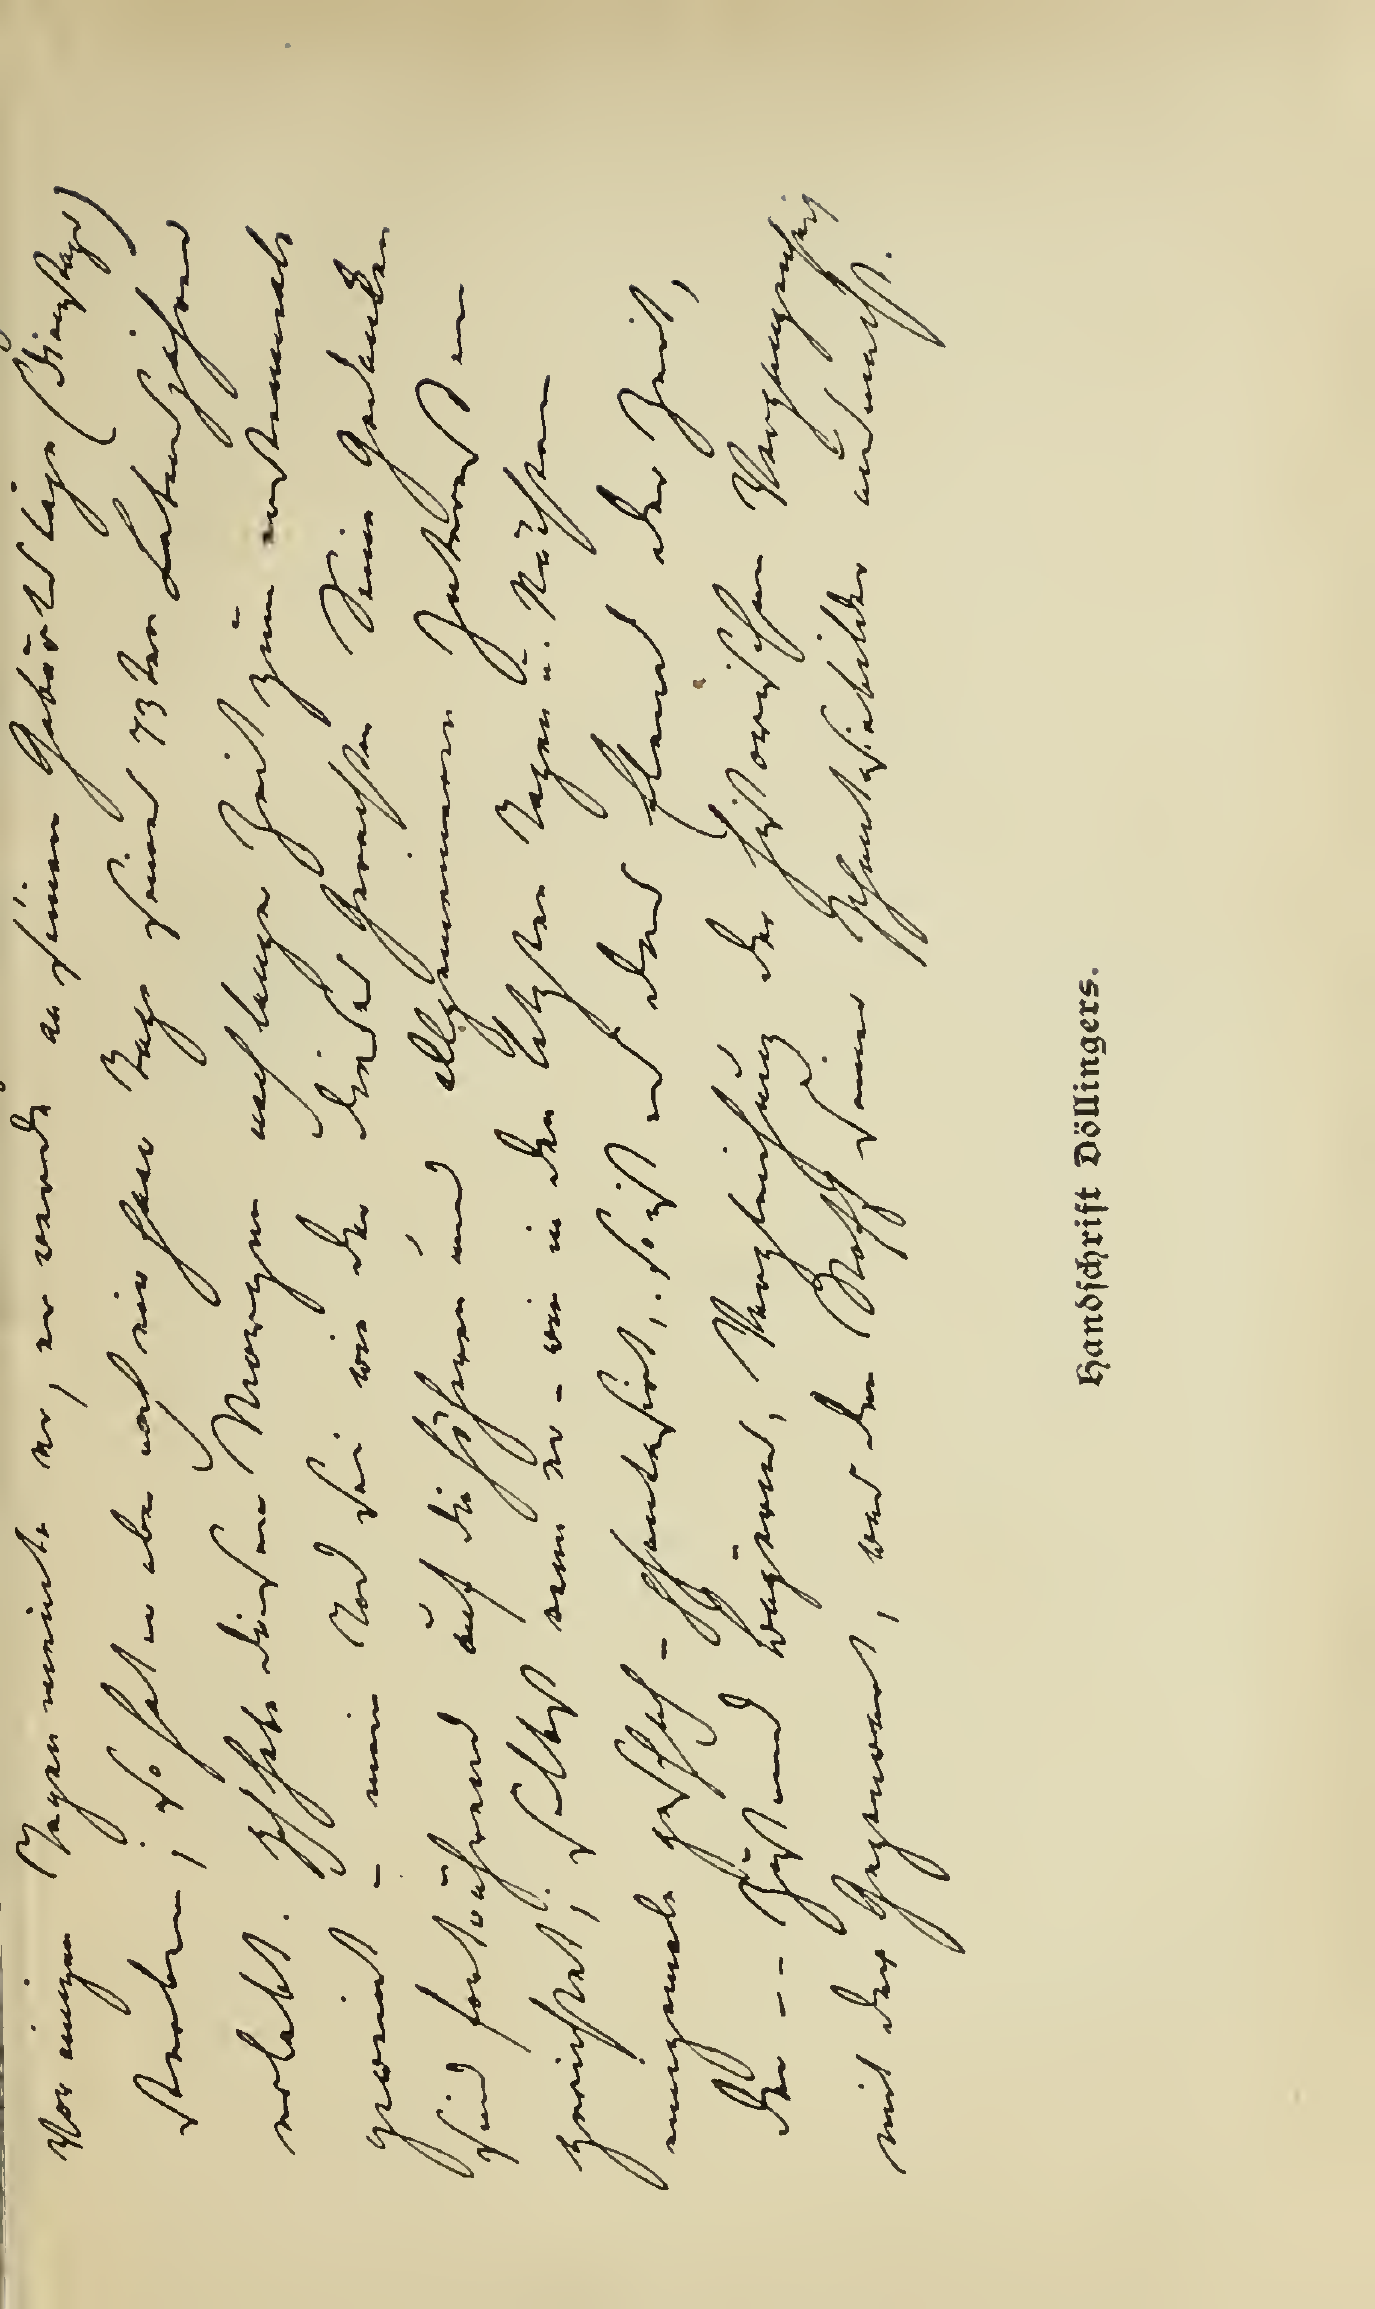 Vor einigen Tagen meinte er, er werde an seinem Geburtstage (Dienstage)
sterben; so hat er aber auch nur seinen Tag seines 73ten Lebensjahres
erlebt. Ich habe diesen Morgen nach langer Zeit zum erstenmale
geweint – mein Tod sei wie der dieses Gerechten. Seine Gedanken
sind fortwährend auf die höheren und allgemeinen Interessen
gerichtet; selbst wenn er – wie in den letzten Tagen u. Nächten
einigemale geschah – phantasirt, so ist es das Elend der Zeit,
der Zustand Bayerns, Vergleichung der historischen Vergangenheit
mit der Gegenwart, was den Stoff seiner Phantasiebilder ausmacht.
Handschrift Döllingers.